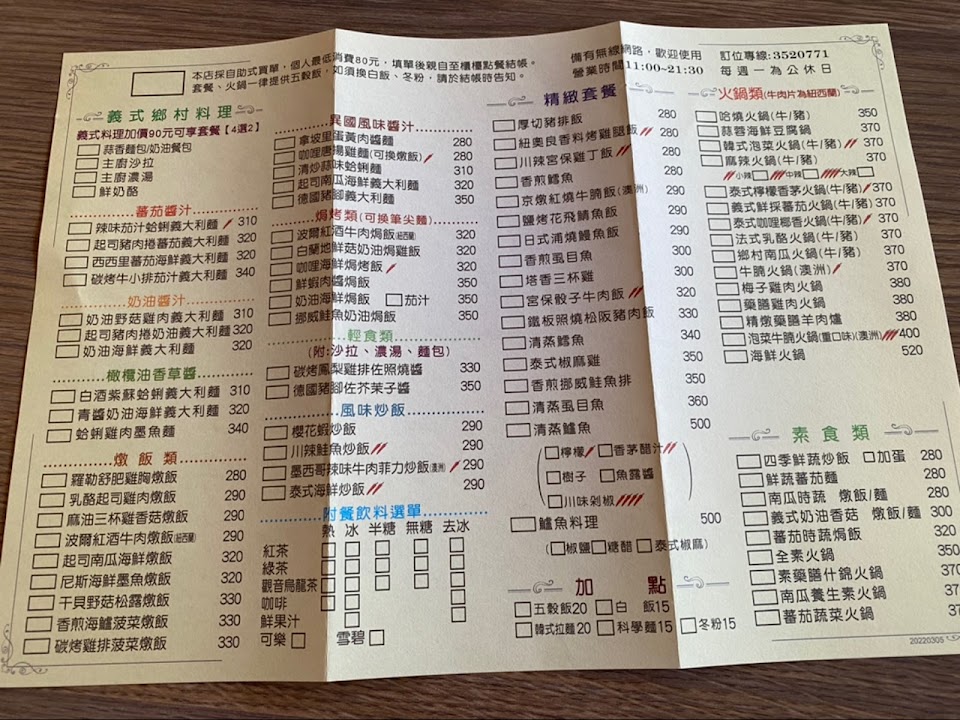 本店採自助式買單,個人最低消費80元,填單後親自至櫃檯點餐結帳。
套餐、火鍋一律提供五穀飯,如須換白飯、冬粉,請於結帳時告知。
備有無線網路,歡迎使用
營業時間11:00~21:30
訂位專線:3520771
每週一為公休日
義式鄉村料理
義式料理加價90元可享套餐【4選2】
蒜香麵包/奶油餐包
主廚沙拉
主廚濃湯
鮮奶酪
蕃茄醬汁
辣味茄汁蛤蜊義大利麵 310
起司豬肉捲蕃茄義大利麵 320
西西里蕃茄海鮮義大利麵 320
碳烤牛小排茄汁義大利麵 340
奶油醬汁
奶油野菇雞肉義大利麵 310
起司豬肉捲奶油義大利麵 320
奶油海鮮義大利麵 320
橄欖油香草醬
白酒紫蘇蛤蜊義大利麵 310
青醬奶油海鮮義大利麵 320
蛤蜊雞肉墨魚麵 340
燉飯類
羅勒舒肥雞胸燉飯 280
乳酪起司雞肉燉飯 290
麻油三杯雞香菇燉飯 290
波爾紅酒牛肉燉飯(紐西蘭) 290
起司南瓜海鮮燉飯 320
尼斯海鮮墨魚燉飯 320
干貝野菇松露燉飯 330
香煎海鱸菠菜燉飯 330
碳烤雞排菠菜燉飯 330
異國風味醬汁
拿坡里蛋黃肉醬麵 280
咖哩唐揚雞麵(可換燉飯) 280
清炒蒜味蛤蜊麵 310
起司南瓜海鮮義大利麵 320
德國豬腳義大利麵 350
焗烤類(可換筆尖麵)
波爾紅酒牛肉焗飯(紐西蘭) 320
白蘭地鮮菇奶油焗雞飯 320
咖哩海鮮焗烤飯 320
鮮蝦肉醬焗飯 350
奶油海鮮焗飯 茄汁 350
挪威鮭魚奶油焗飯 350
輕食類
(附:沙拉、濃湯、麵包)
碳烤鳳梨雞排佐照燒醬 330
德國豬腳佐芥茉子醬 350
風味炒飯
櫻花蝦炒飯 290
川辣鮭魚炒飯 290
墨西哥辣味牛肉菲力炒飯(澳洲) 290
泰式海鮮炒飯 290
附餐飲料選單
熱 冰 半糖 無糖 去冰
紅茶
綠茶
觀音烏龍茶
咖啡
鮮果汁
可樂 雪碧
精緻套餐
厚切豬排飯 280
紐奧良香料烤雞腿飯 280
川辣宮保雞丁飯 280
香煎鱈魚
京燉紅燒牛腩飯(澳洲) 290
鹽烤花飛鯖魚飯 290
日式蒲燒鰻魚飯 290
香煎虱目魚 290
塔香三杯雞
宮保骰子牛肉飯 320
鐵板照燒松阪豬肉飯 330
清蒸鱈魚 340
泰式椒麻雞 350
香煎挪威鮭魚排 350
清蒸虱目魚 360
清蒸鱸魚 500
檸檬 香茅醋汁
樹子 魚露醬
川味剁椒
鱸魚料理 500
(椒鹽 糖醋 泰式椒麻)
加點
五穀飯20 白飯15
韓式拉麵20 科學麵15 冬粉15
火鍋類(牛肉片為紐西蘭)
哈燒火鍋(牛/豬) 350
蒜蓉海鮮豆腐鍋 370
韓式泡菜火鍋(牛/豬) 370
麻辣火鍋(牛/豬) 370
小辣 中辣 大辣
泰式檸檬香茅火鍋(牛/豬) 370
義式鮮採蕃茄火鍋(牛/豬) 370
泰式咖哩椰香火鍋(牛/豬) 370
法式乳酪火鍋(牛/豬) 370
鄉村南瓜火鍋(牛/豬) 370
牛腩火鍋(澳洲) 370
梅子雞肉火鍋 380
藥膳雞肉火鍋 380
精燉藥膳羊肉爐 380
泡菜牛腩火鍋(重口味)(澳洲) 400
海鮮火鍋 520
素食類
四季鮮蔬炒飯 加蛋 280
鮮蔬蕃茄麵 280
南瓜時蔬 燉飯/麵 280
義式奶油香菇 燉飯/麵 300
蕃茄時蔬焗飯 320
全素火鍋 350
素藥膳什錦火鍋
南瓜養生素火鍋
蕃茄蔬菜火鍋
20220305